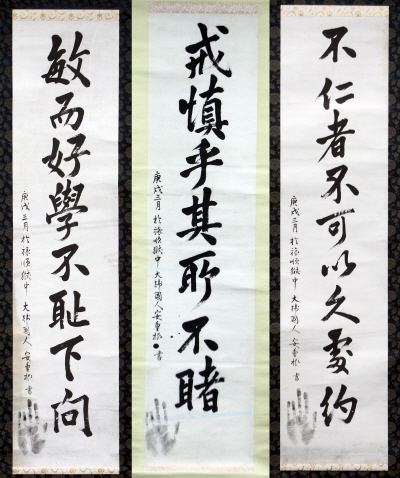 不仁者不可以久處約
庚戌三月 於旅順獄中 大韓國人 安重根 書
戒慎乎其所不睹
庚戌三月 於旅順獄中 大韓國人 安重根 書
敏而好學不恥下問
庚戌三月 於旅順獄中 大韓國人 安重根 書